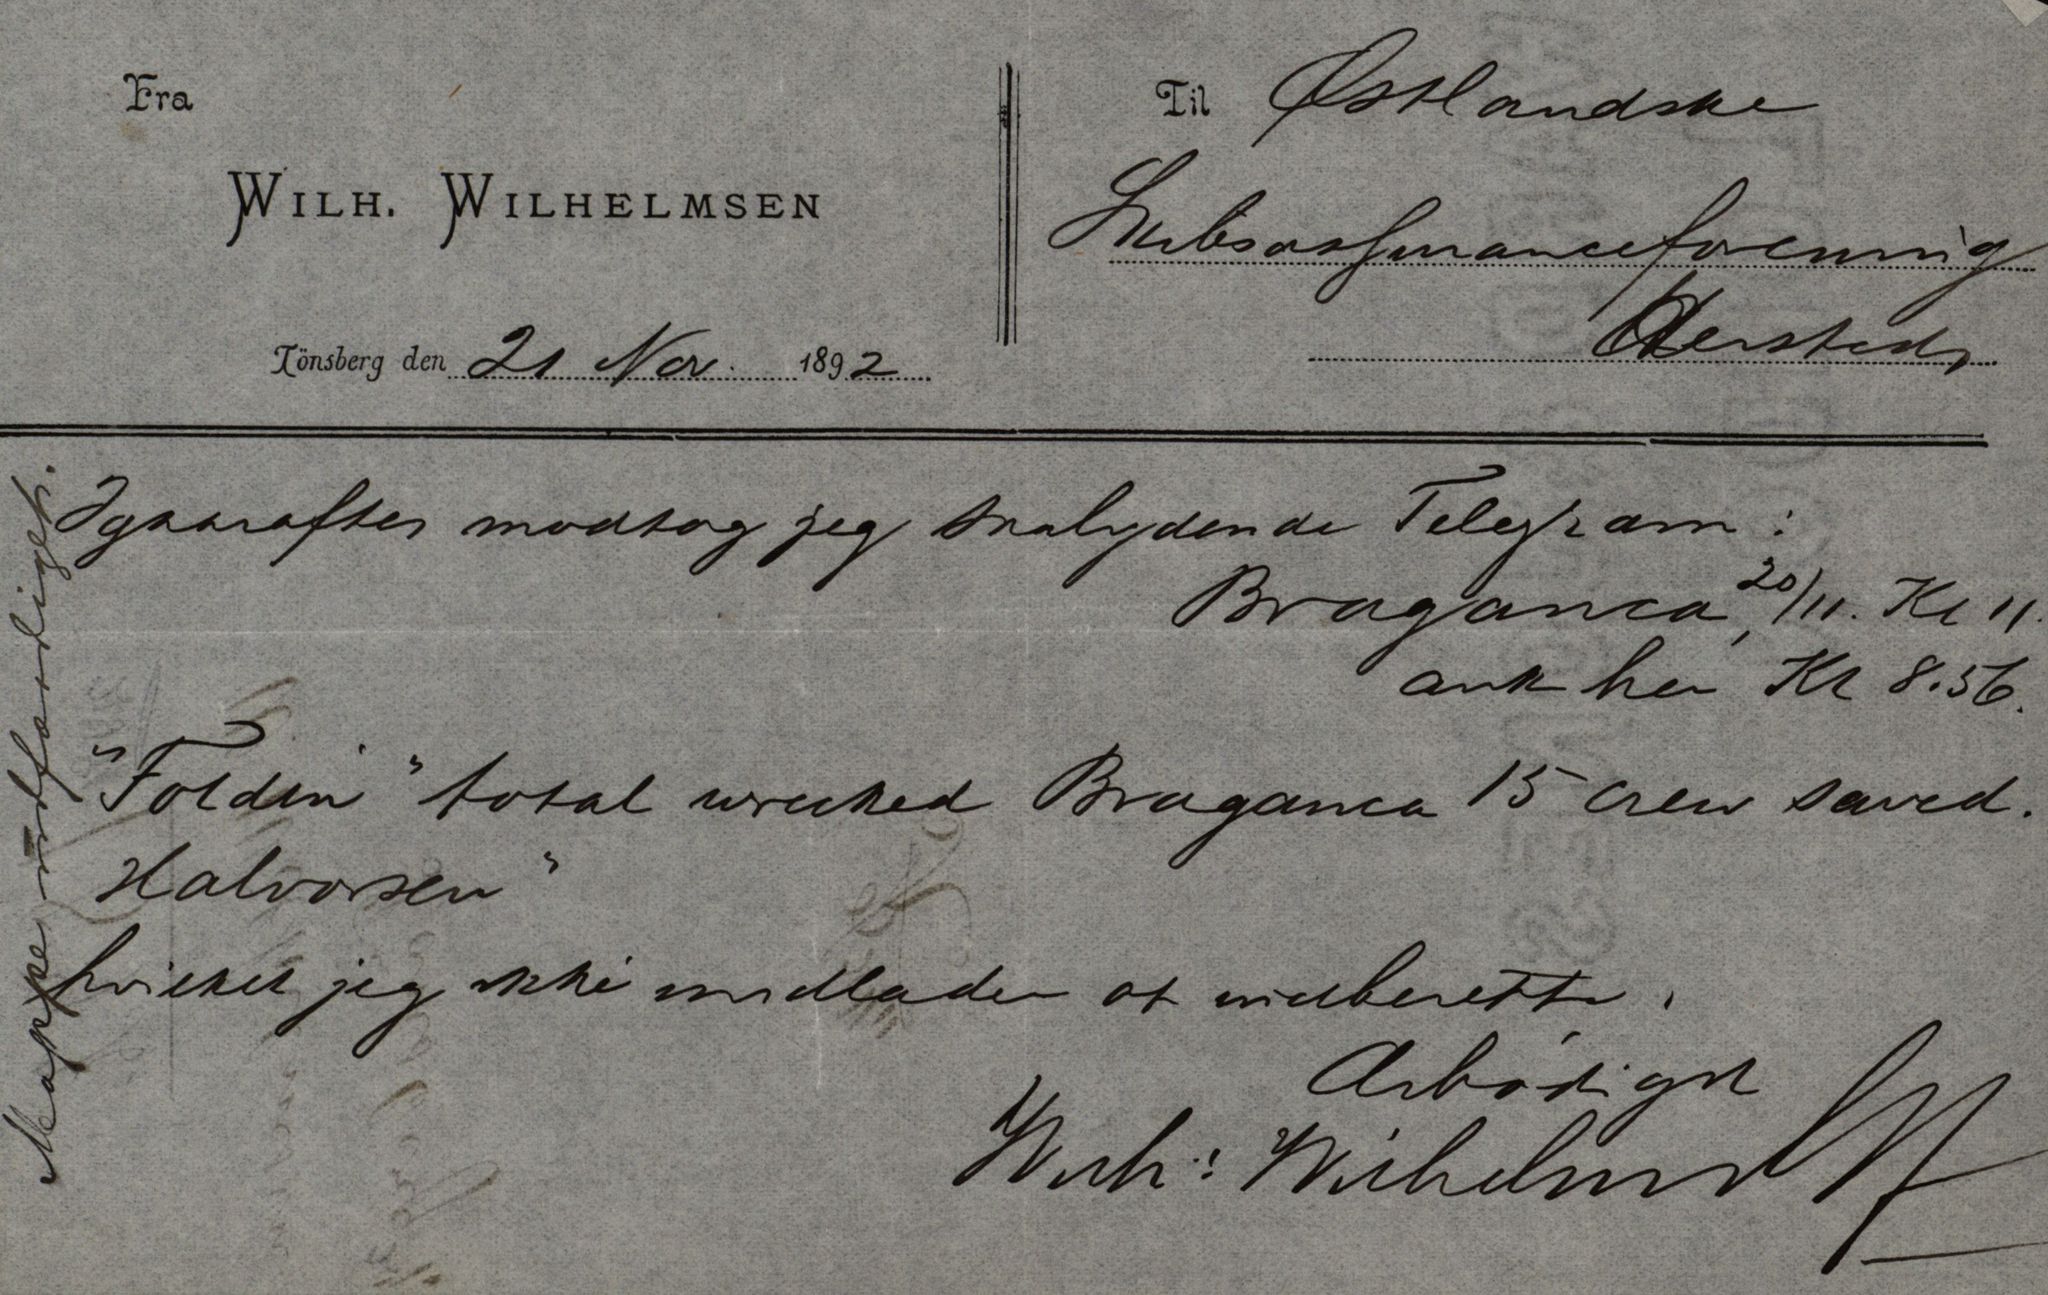 Fra
WILH. WILHELMSEN
Tönsberg den 21 Nov. 1892
Til Østlandske
Skibsassuranceforening
Hersteds
Igaaraftes modtog jeg saalydende Telegram:
Braganca, 20/11. Kl 11.
ank her Kl 8.56.
"Foldin" total wrecked Braganca 15 crew saved.
Halvorsen"
hvilket jeg ikke undlader at indberette.
Ærbødigst
Wilh: Wilhelmsen
Mappe udfærdiget.